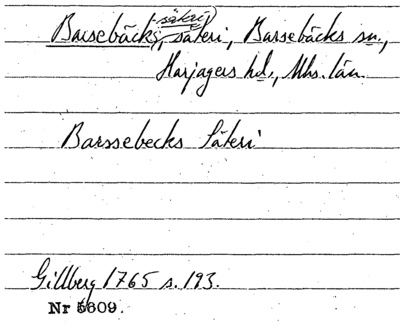 säteri)
Barsebäcks, säteri, Barsebäcks sn.,
Harjagers hd., Mhs. län.
Barssebecks Säteri
Gillberg 1765 s. 193.
Nr 5609.